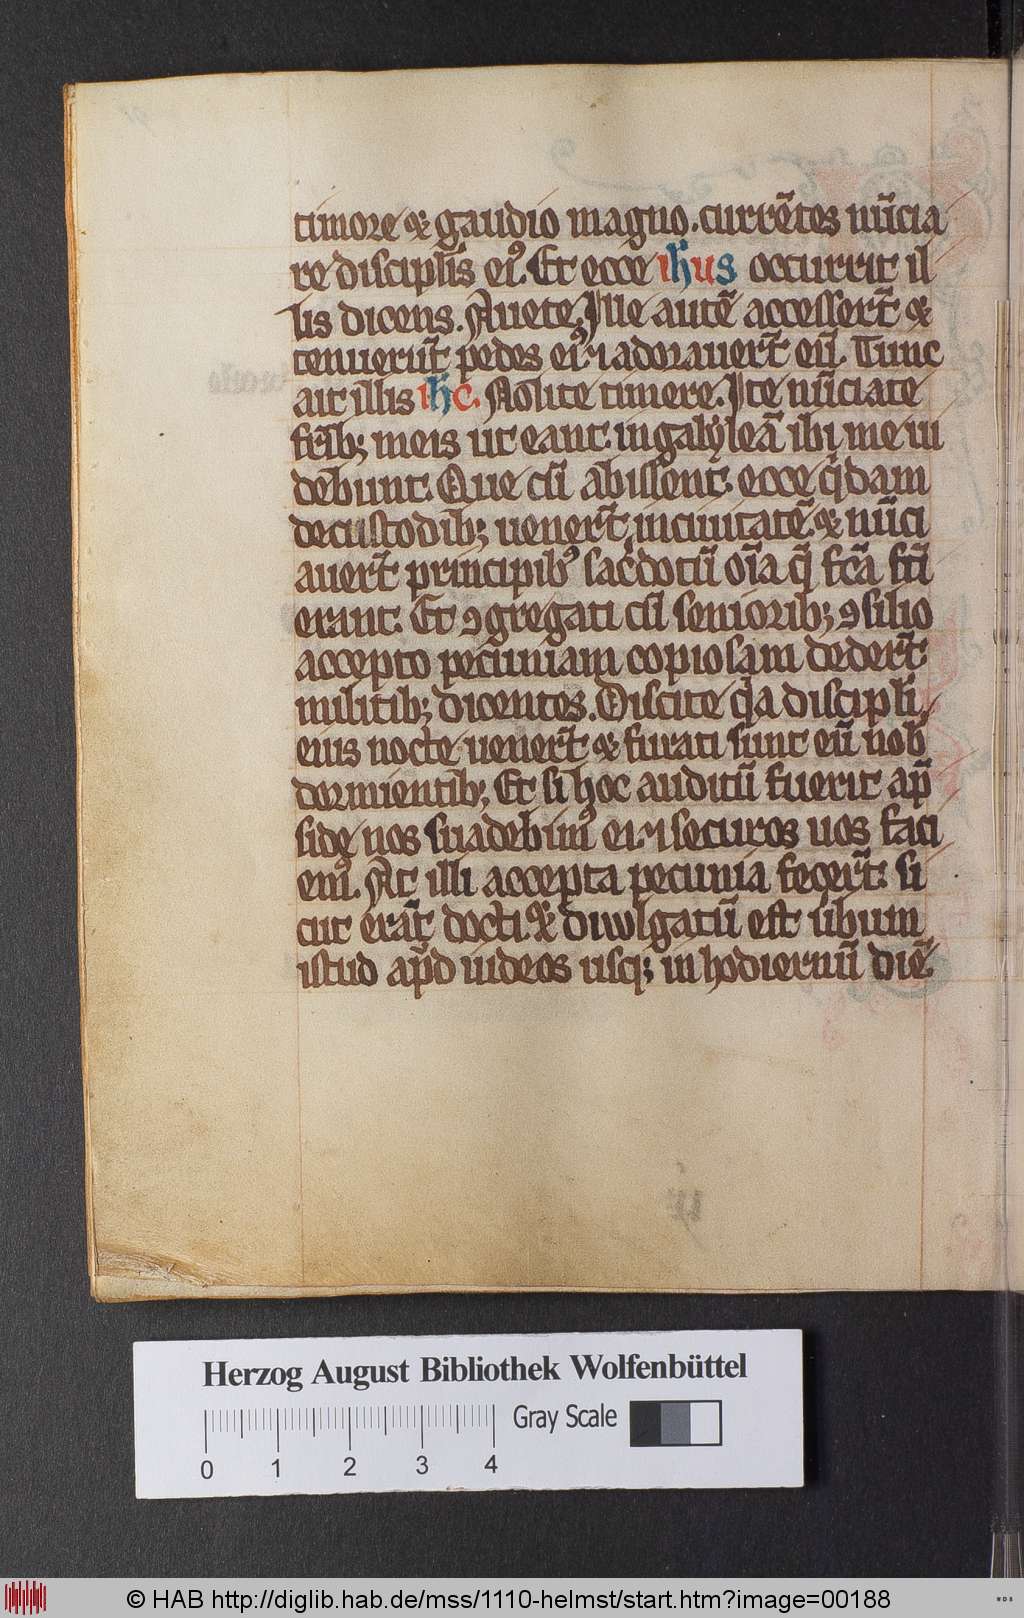 timore ⁊ gaudio magno. currētes nūcia
re discipl'is ei⁹. Et ecce ihus occurrit il
lis dicens. Auete. Ille autē accesser̄t ⁊
tenuerūt pedes ei⁹. ⁊ adorauer̄t eū. Tunc
ait illis ihc. Nolite timere. Ite nūciate
fr̄ib; meis ut eant in galyleā ibi me ui
debunt. Que cū abissent. ecce q̄dam
de custodib; uener̄t in ciuitatē. ⁊ nūci
auer̄t principib⁹ sac̄dotū oīa q̄ fc̄a fu
erant. Et ꝯgregati cū seniorib; ꝯsilio
accepto pecuniam copiosam deder̄t
militib; dicentes. Dicite q̄a discipli
eius nocte uener̄t ⁊ furati sunt eū nob̄
dormientib; Et si hoc auditū fuerit ap̄
side nos suadebim⁹ ei. ⁊ securos uos faci
em⁹. At illi accepta pecunia fecer̄t. si
cut erāt docti. ⁊ diwlgatū est ūbum
istud ap̄d iudeos usq; in hodiernū diē.
Herzog August Bibliothek Wolfenbüttel
Gray Scale
0 1 2 3 4
© HAB http://diglib.hab.de/mss/1110-helmst/start.htm?image=00188